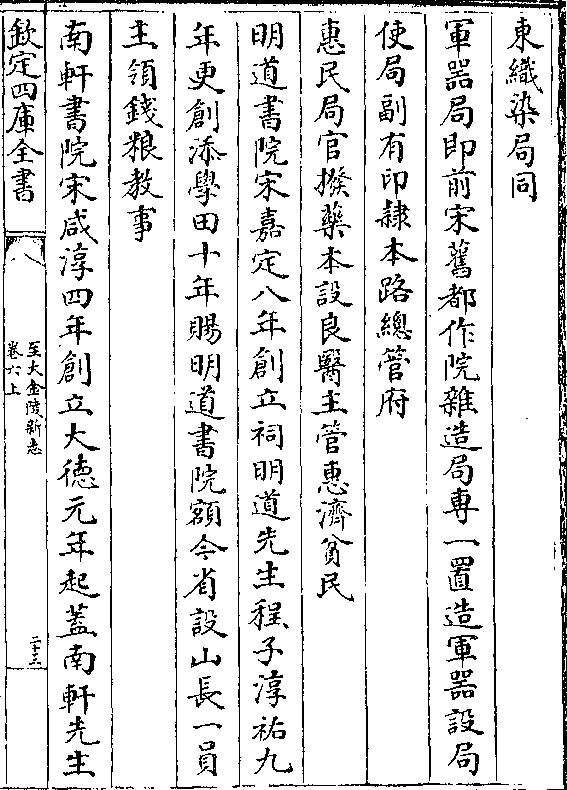 東織染局同
軍器局即前宋舊都作院雜造局専一置造軍器設局
使局副有印隷本路總管府
惠民局官撥藥本設良醫主管惠濟貧民
明道書院宋嘉定八年創立祠明道先生程子淳祐九
年更創添學田十年賜明道書院額今省設山長一員
主領錢粮教事
南軒書院宋咸淳四年創立大德元年起蓋南軒先生
欽定四庫全書
至大金陵新志
卷六上
二十三